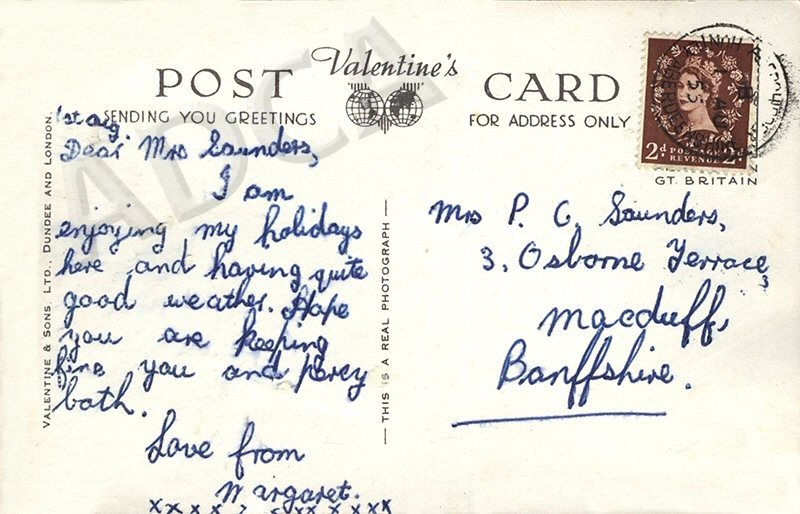 POST Valentine's CARD
SENDING YOU GREETINGS
FOR ADDRESS ONLY
1st Aug
Dear Mrs Saunders,
I am
enjoying my holidays
here and having quite
good weather. Hope
you are keeping
fine you and Percy
both.
Love from
Margaret.
x x x x x x x x x x
VALENTINE & SONS, LTD., DUNDEE AND LONDON.
THIS IS A REAL PHOTOGRAPH
2d POSTAGE 2d
REVENUE
GT. BRITAIN
Mrs P. C. Saunders,
3, Osborne Terrace,
Macduff,
Banffshire.
ADCA